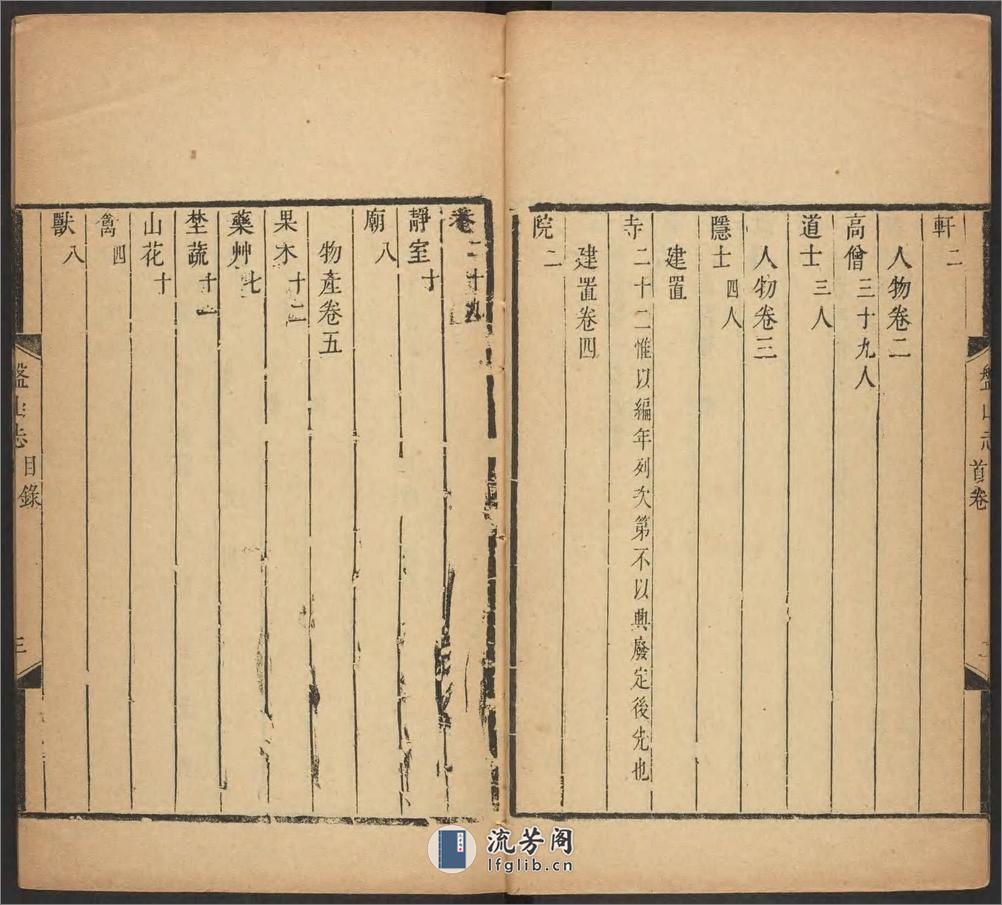 軒二
人物卷二
高僧三十九人
道士三人
人物卷三
隱士四人
建置
寺二十二惟以編年列次第不以興廢定後先也
建置卷四
院二
盤山志 首卷
二十九
靜室十
廟八
物產卷五
果木十二
藥艸七
埜蔬十二
山花十
禽四
獸八
盤山志 目錄 三
流芳阁
lfglib.cn